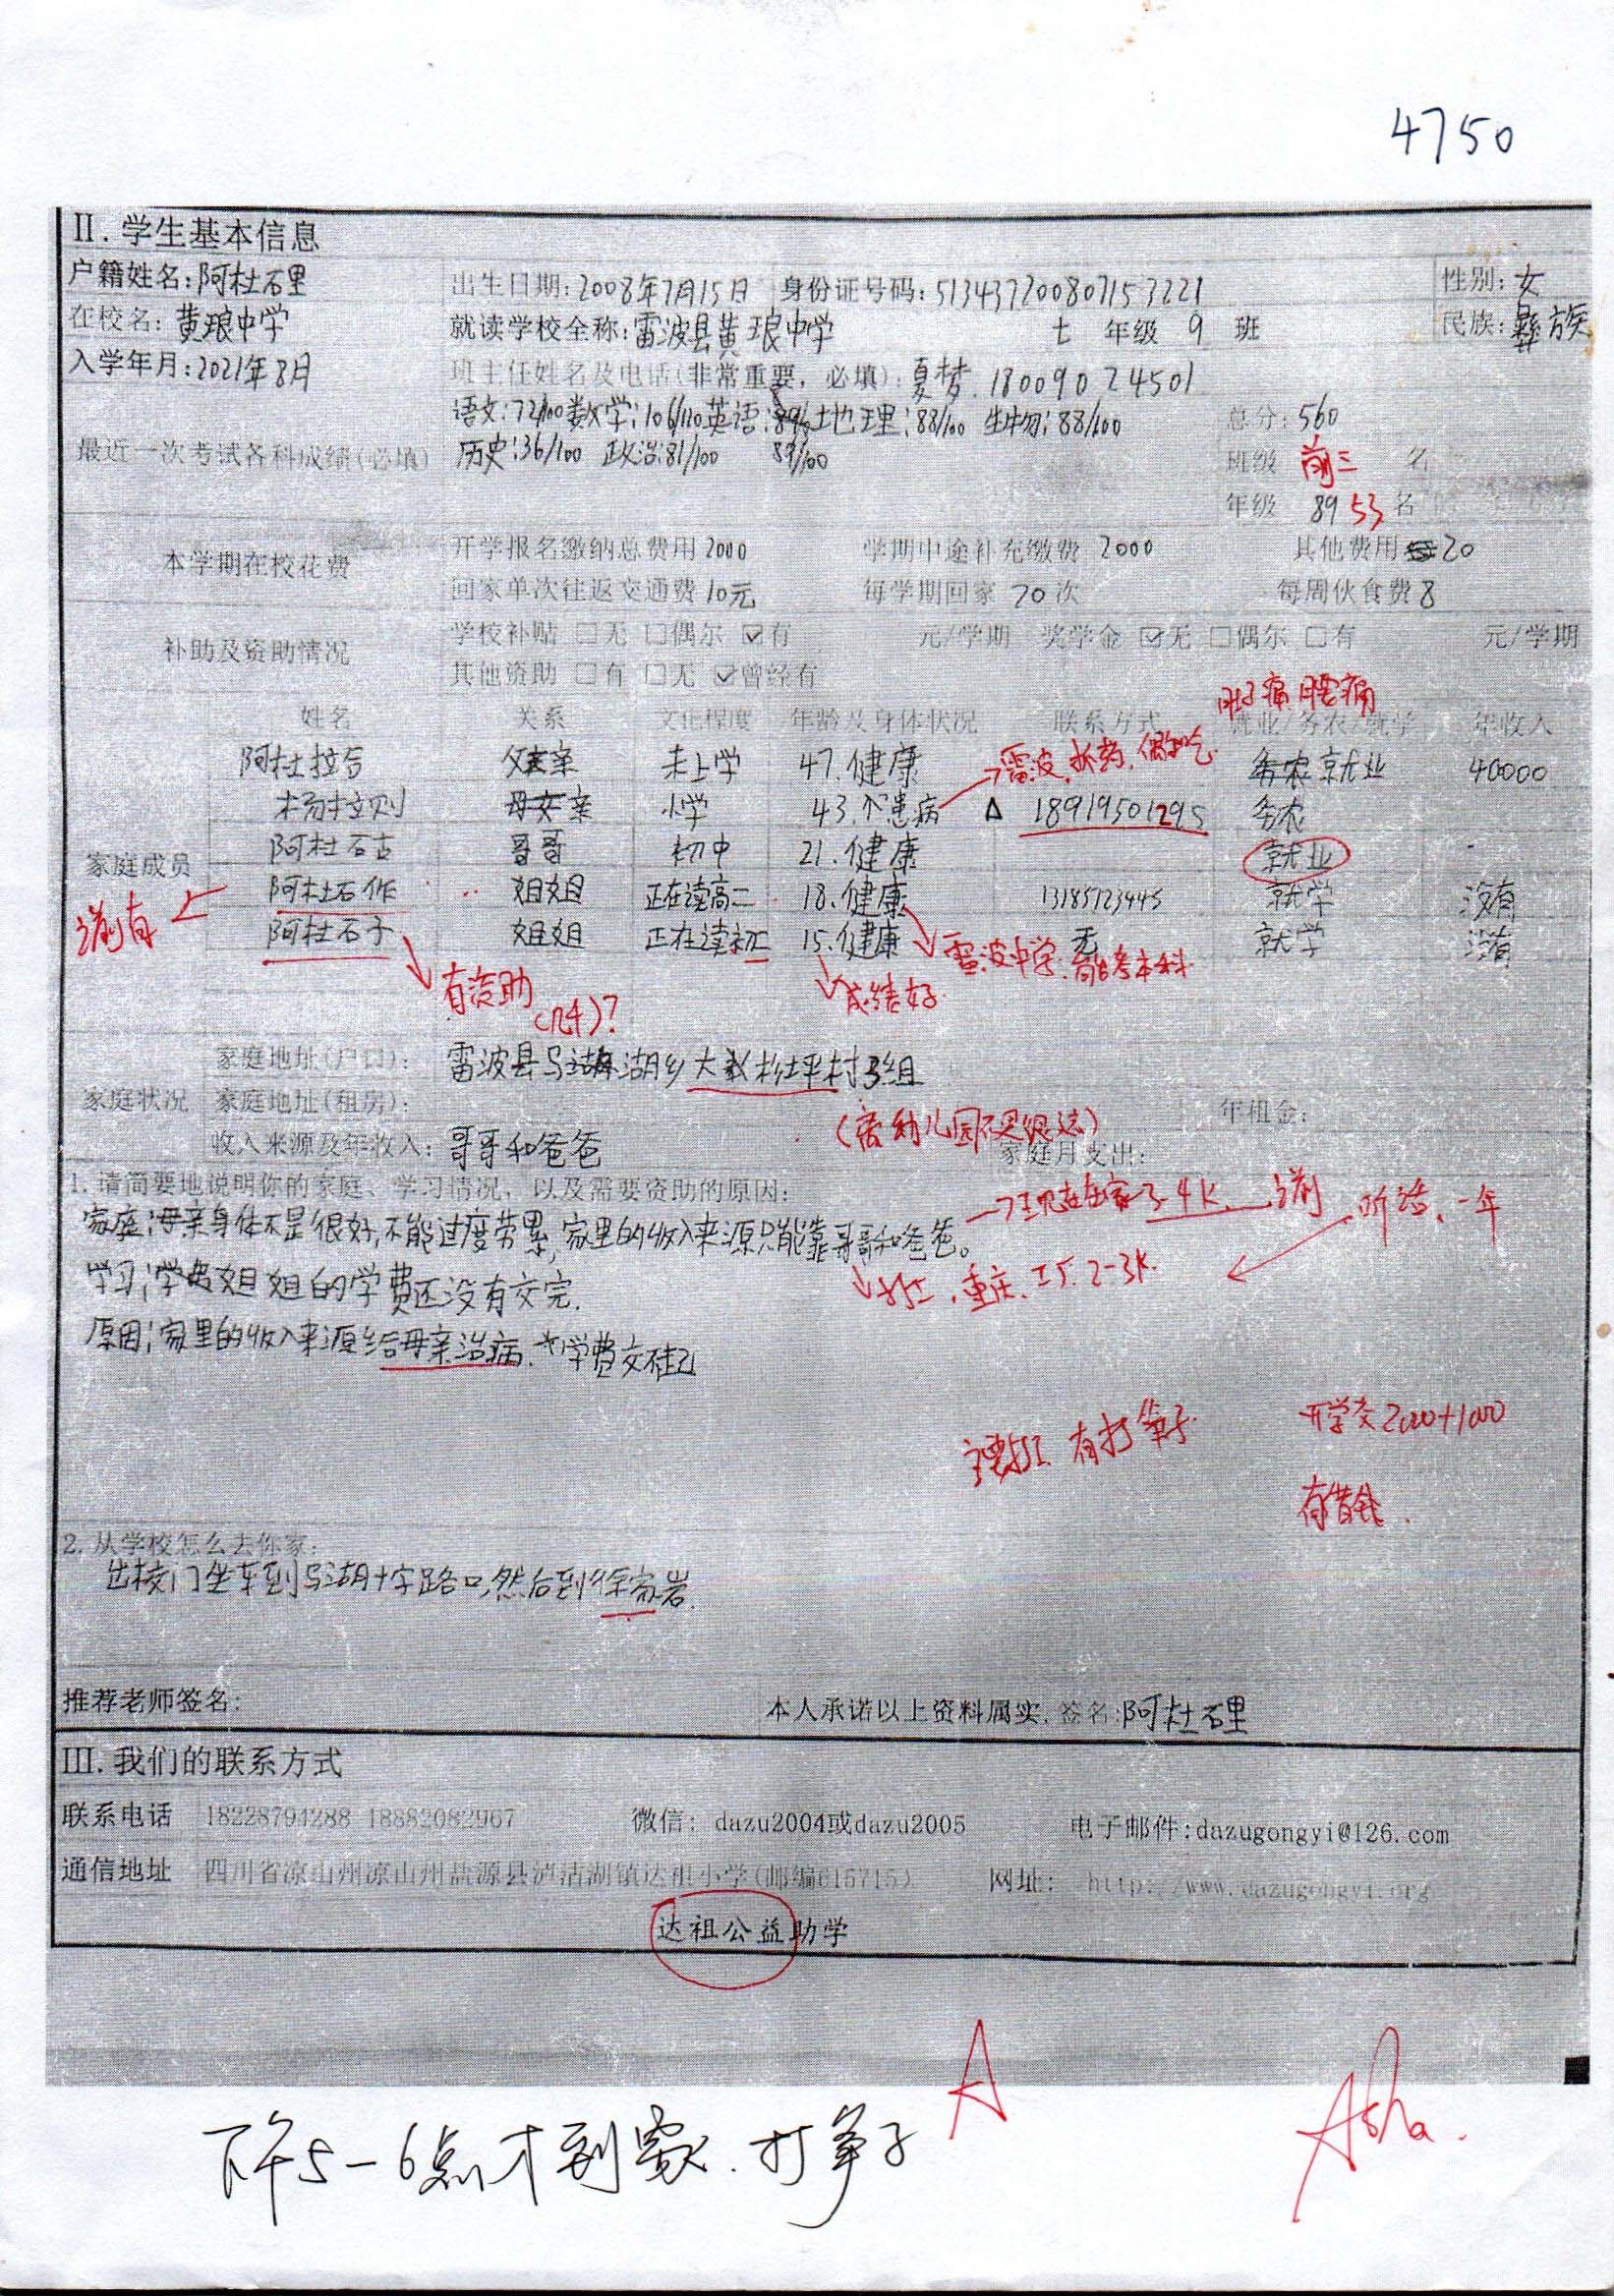 4750
II. 学生基本信息
户籍姓名:阿杜石里 出生日期:2008年7月15日 身份证号码:513437200807153221 性别:女
在校名:黄琅中学 就读学校全称:雷波县黄琅中学 七 年级 9 班 民族:彝族
入学年月:2021年8月 班主任姓名及电话(非常重要,必填):夏梦.18009024501
语文:72/100 数学:106/110 英语: 地理:88/100 生物:88/100 总分:560
最近一次考试各科成绩(必填) 历史:36/100 政治:81/100 89/100 班级 前三 名
年级 89 53 名
本学期在校花费 开学报名缴纳总费用 2000 学期中途补充缴费 2000 其他费用 20
回家单次往返交通费 10元 每学期回家 20 次 每周伙食费 8
补助及资助情况 学校补贴 □无 □偶尔 ☑有 元/学期 奖学金 ☑无 □偶尔 □有 元/学期
其他资助 □有 □无 ☑曾经有
痛 腰痛
姓名 关系 文化程度 年龄及身体状况 联系方式 就业/务农/就学 年收入
阿杜拉合 父亲 未上学 47.健康 →雷波.抓药.偶尔吃 就业 40000
杨拉则 母亲 小学 43 患病 △ 18919501295 务农
家庭成员 阿杜石古 哥哥 初中 21.健康 就业
阿杜石作 姐姐 正在读高二 18.健康 13185723445 就学 没有
阿杜石子 姐姐 正在读初二 15.健康 无 就学 没有
有资助 成绩好 雷波中学.能考本科
家庭地址(户口): 雷波县马湖乡大杉坪村3组
家庭状况 家庭地址(租房): 年租金:
收入来源及年收入: 哥哥和爸爸 家庭月支出:
1.请简要地说明你的家庭、学习情况,以及需要资助的原因:
家庭:母亲身体不是很好,不能过度劳累,家里的收入来源只能靠哥哥和爸爸。
听话、一年
学习:姐姐的学费还没有交完.
打工.重庆.工厂.2-3K.
原因:家里的收入来源给母亲治病.学费交不起
开学交2000+1000
有打笋子
有借钱.
2.从学校怎么去你家:
出校门坐车到马湖十字路口,然后到徐家岩.
推荐老师签名: 本人承诺以上资料属实,签名:阿杜石里
III.我们的联系方式
联系电话 18228794288 18882082967 微信: dazu2004或dazu2005 电子邮件:dazugongyi@126.com
通信地址 四川省凉山州凉山州盐源县泸沽湖镇达祖小学(邮编615715) 网址: http://www.dazugongyi.org
达祖公益助学
A
Asha.
下午5-6点才到家.打笋子